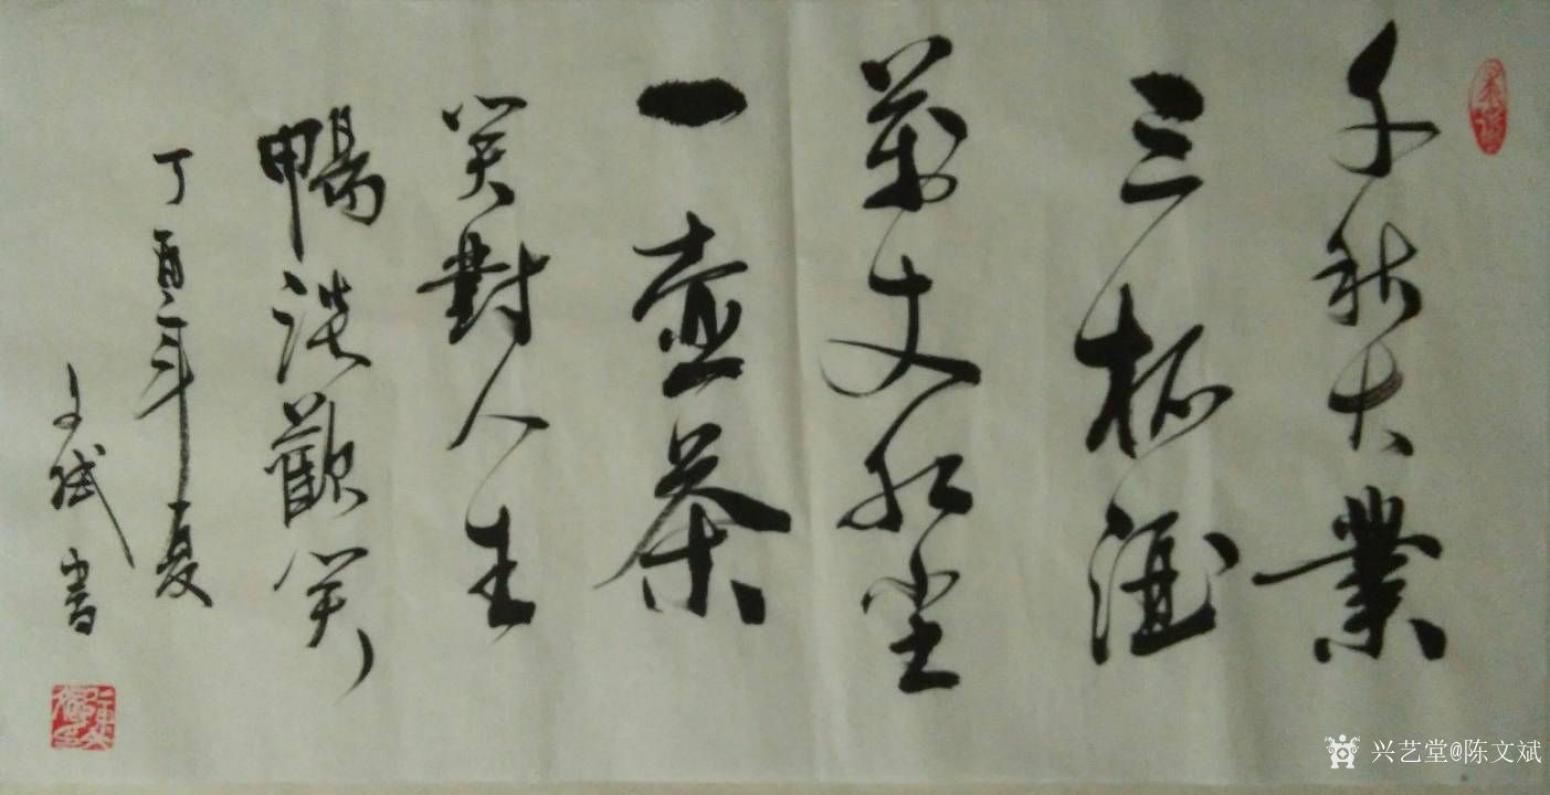 千秋大業
三杯酒
萬丈红尘
一壺茶
笑對人生
暢談歡笑
丁酉年夏
文斌書
兴艺堂@陈文斌